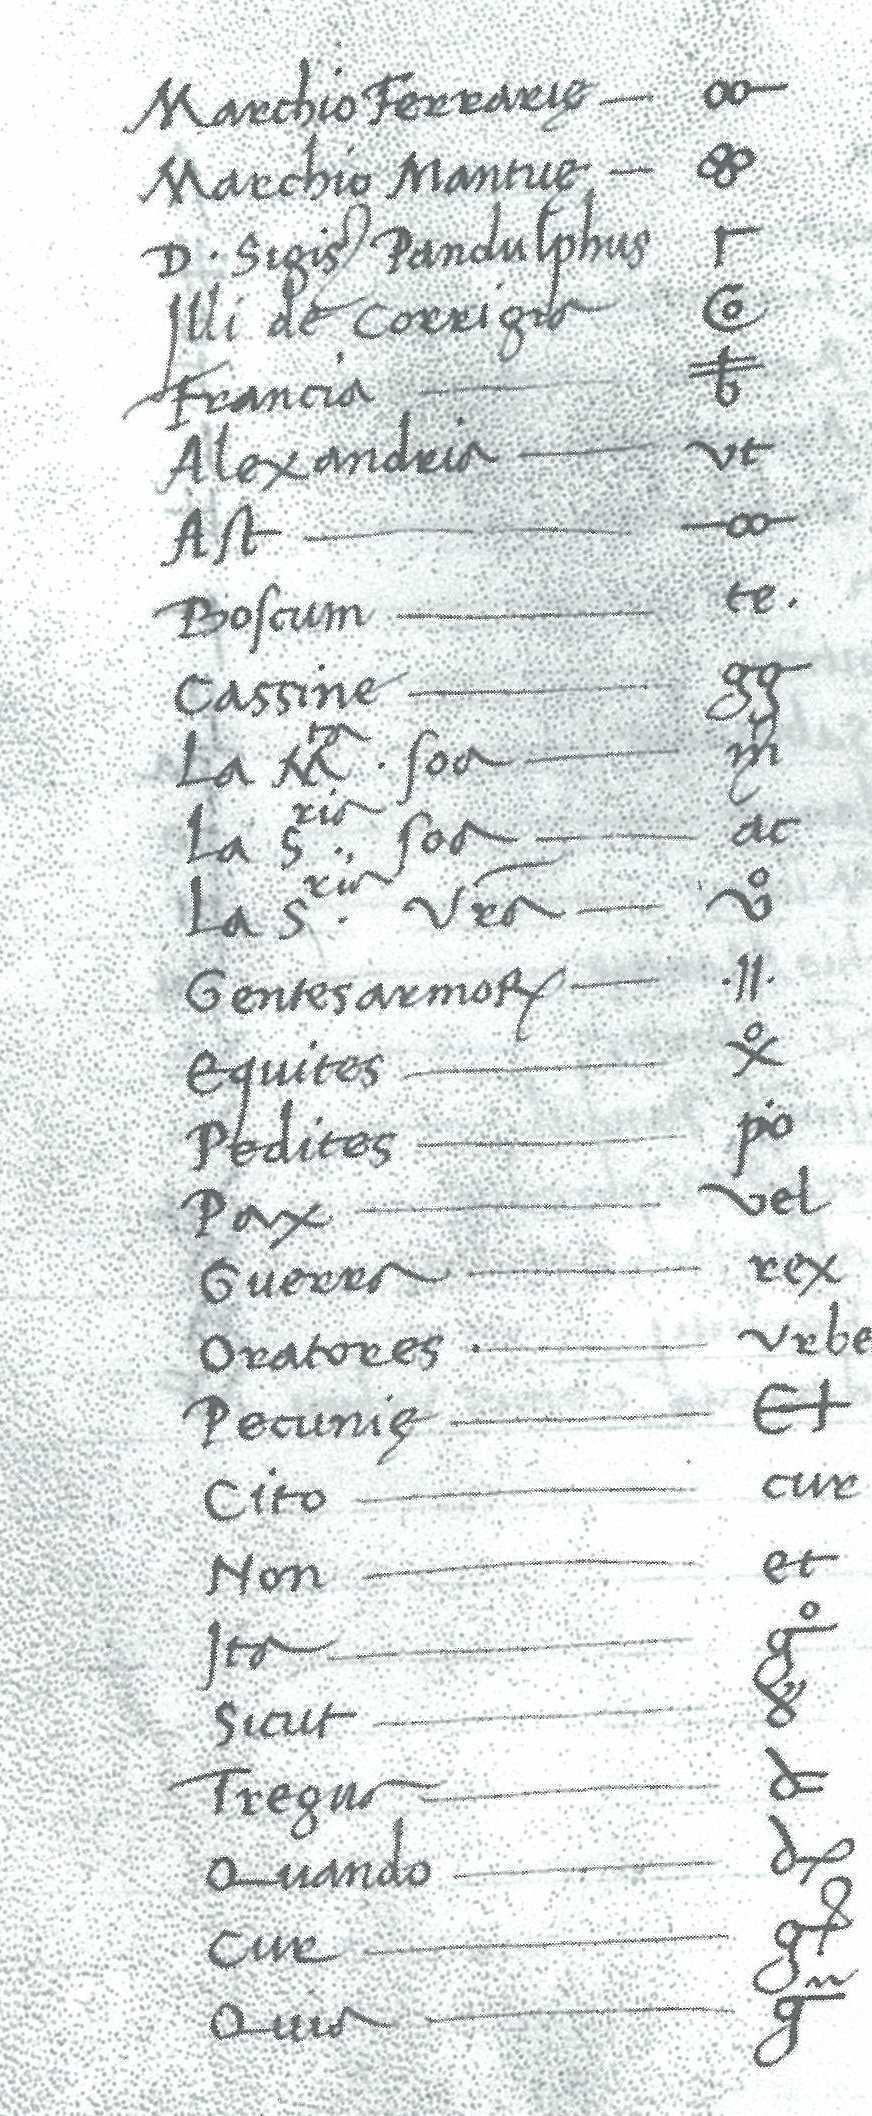 Marchio Ferrarie — ꝏ—
Marchio Mantue —
D. Sigis Pandulphus Γ
Illi de Corrigia
Francia —
Alexandria — vt
Ast — —ꝏ—
Boscum — te.
Cassine — gg
La Mta. soa — m
La Sria. soa — ac
La Sria. Vra — vo
Gentesarmoꝝ — .ll.
Equites — xo
Pedites — po
Pax — vel
Guerra — rex
Oratores — vrbe
Pecunie — Et
Cito — cur
Non — et
Ita — go
Sicut — 8"
Tregua —
Quando —
Cur —
Quia — g